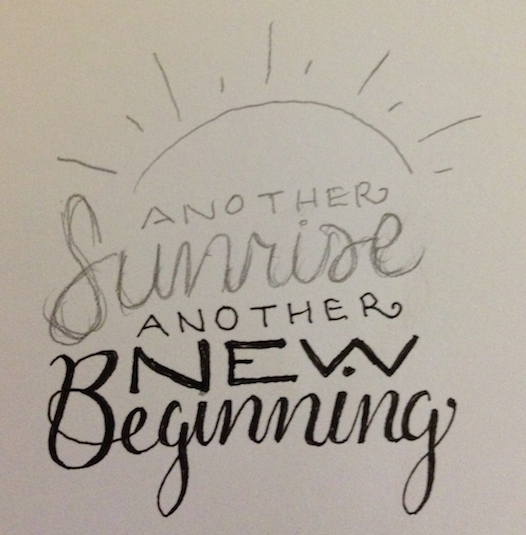 ANOTHER
Sunrise
ANOTHER
NEW
Beginning